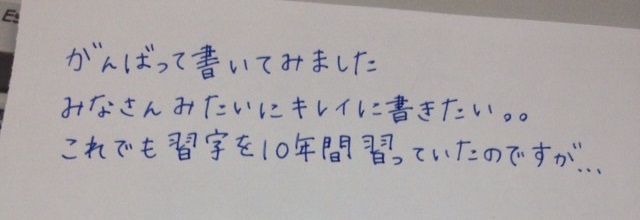 Es
がんばって書いてみました
みなさんみたいにキレイに書きたい。。
これでも習字を10年間習っていたのですが…